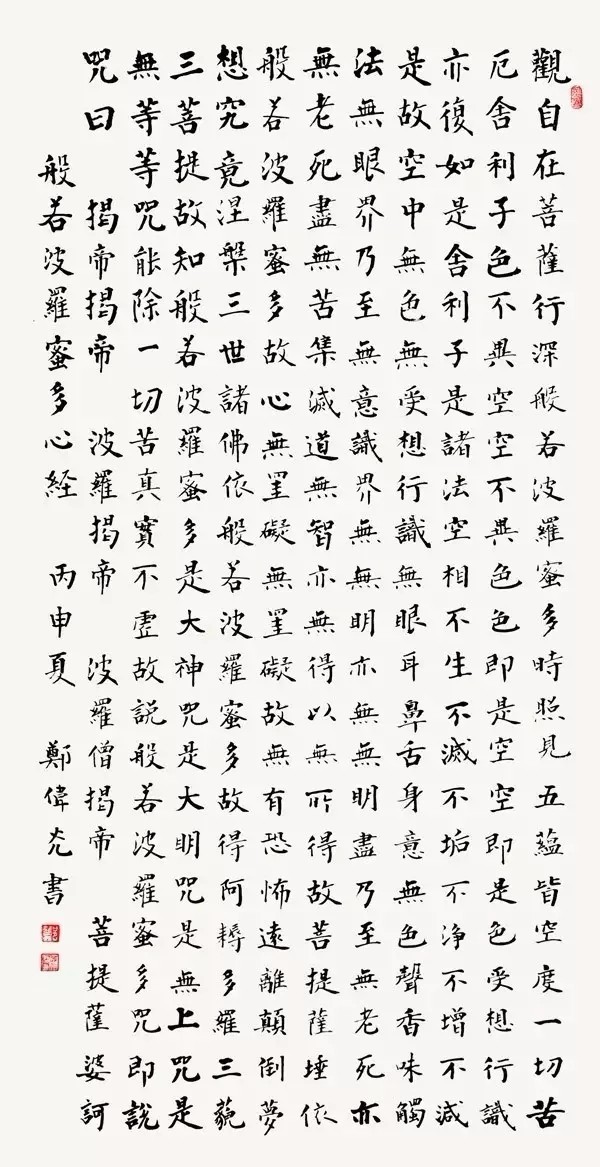 觀自在菩薩行深般若波羅蜜多時照見五蘊皆空度一切苦
厄舍利子色不異空空不異色色即是空空即是色受想行識
亦復如是舍利子是諸法空相不生不滅不垢不淨不增不減
是故空中無色無受想行識無眼耳鼻舌身意無色聲香味觸
法無眼界乃至無意識界無無明亦無無明盡乃至無老死亦
無老死盡無苦集滅道無智亦無得以無所得故菩提薩埵依
般若波羅蜜多故心無罣礙無罣礙故無有恐怖遠離顛倒夢
想究竟涅槃三世諸佛依般若波羅蜜多故得阿耨多羅三藐
三菩提故知般若波羅蜜多是大神咒是大明咒是無上咒是
無等等咒能除一切苦真實不虛故說般若波羅蜜多咒即說
咒曰 揭帝揭帝 波羅揭帝 波羅僧揭帝 菩提薩婆訶
般若波羅蜜多心経 丙申夏 鄭偉書